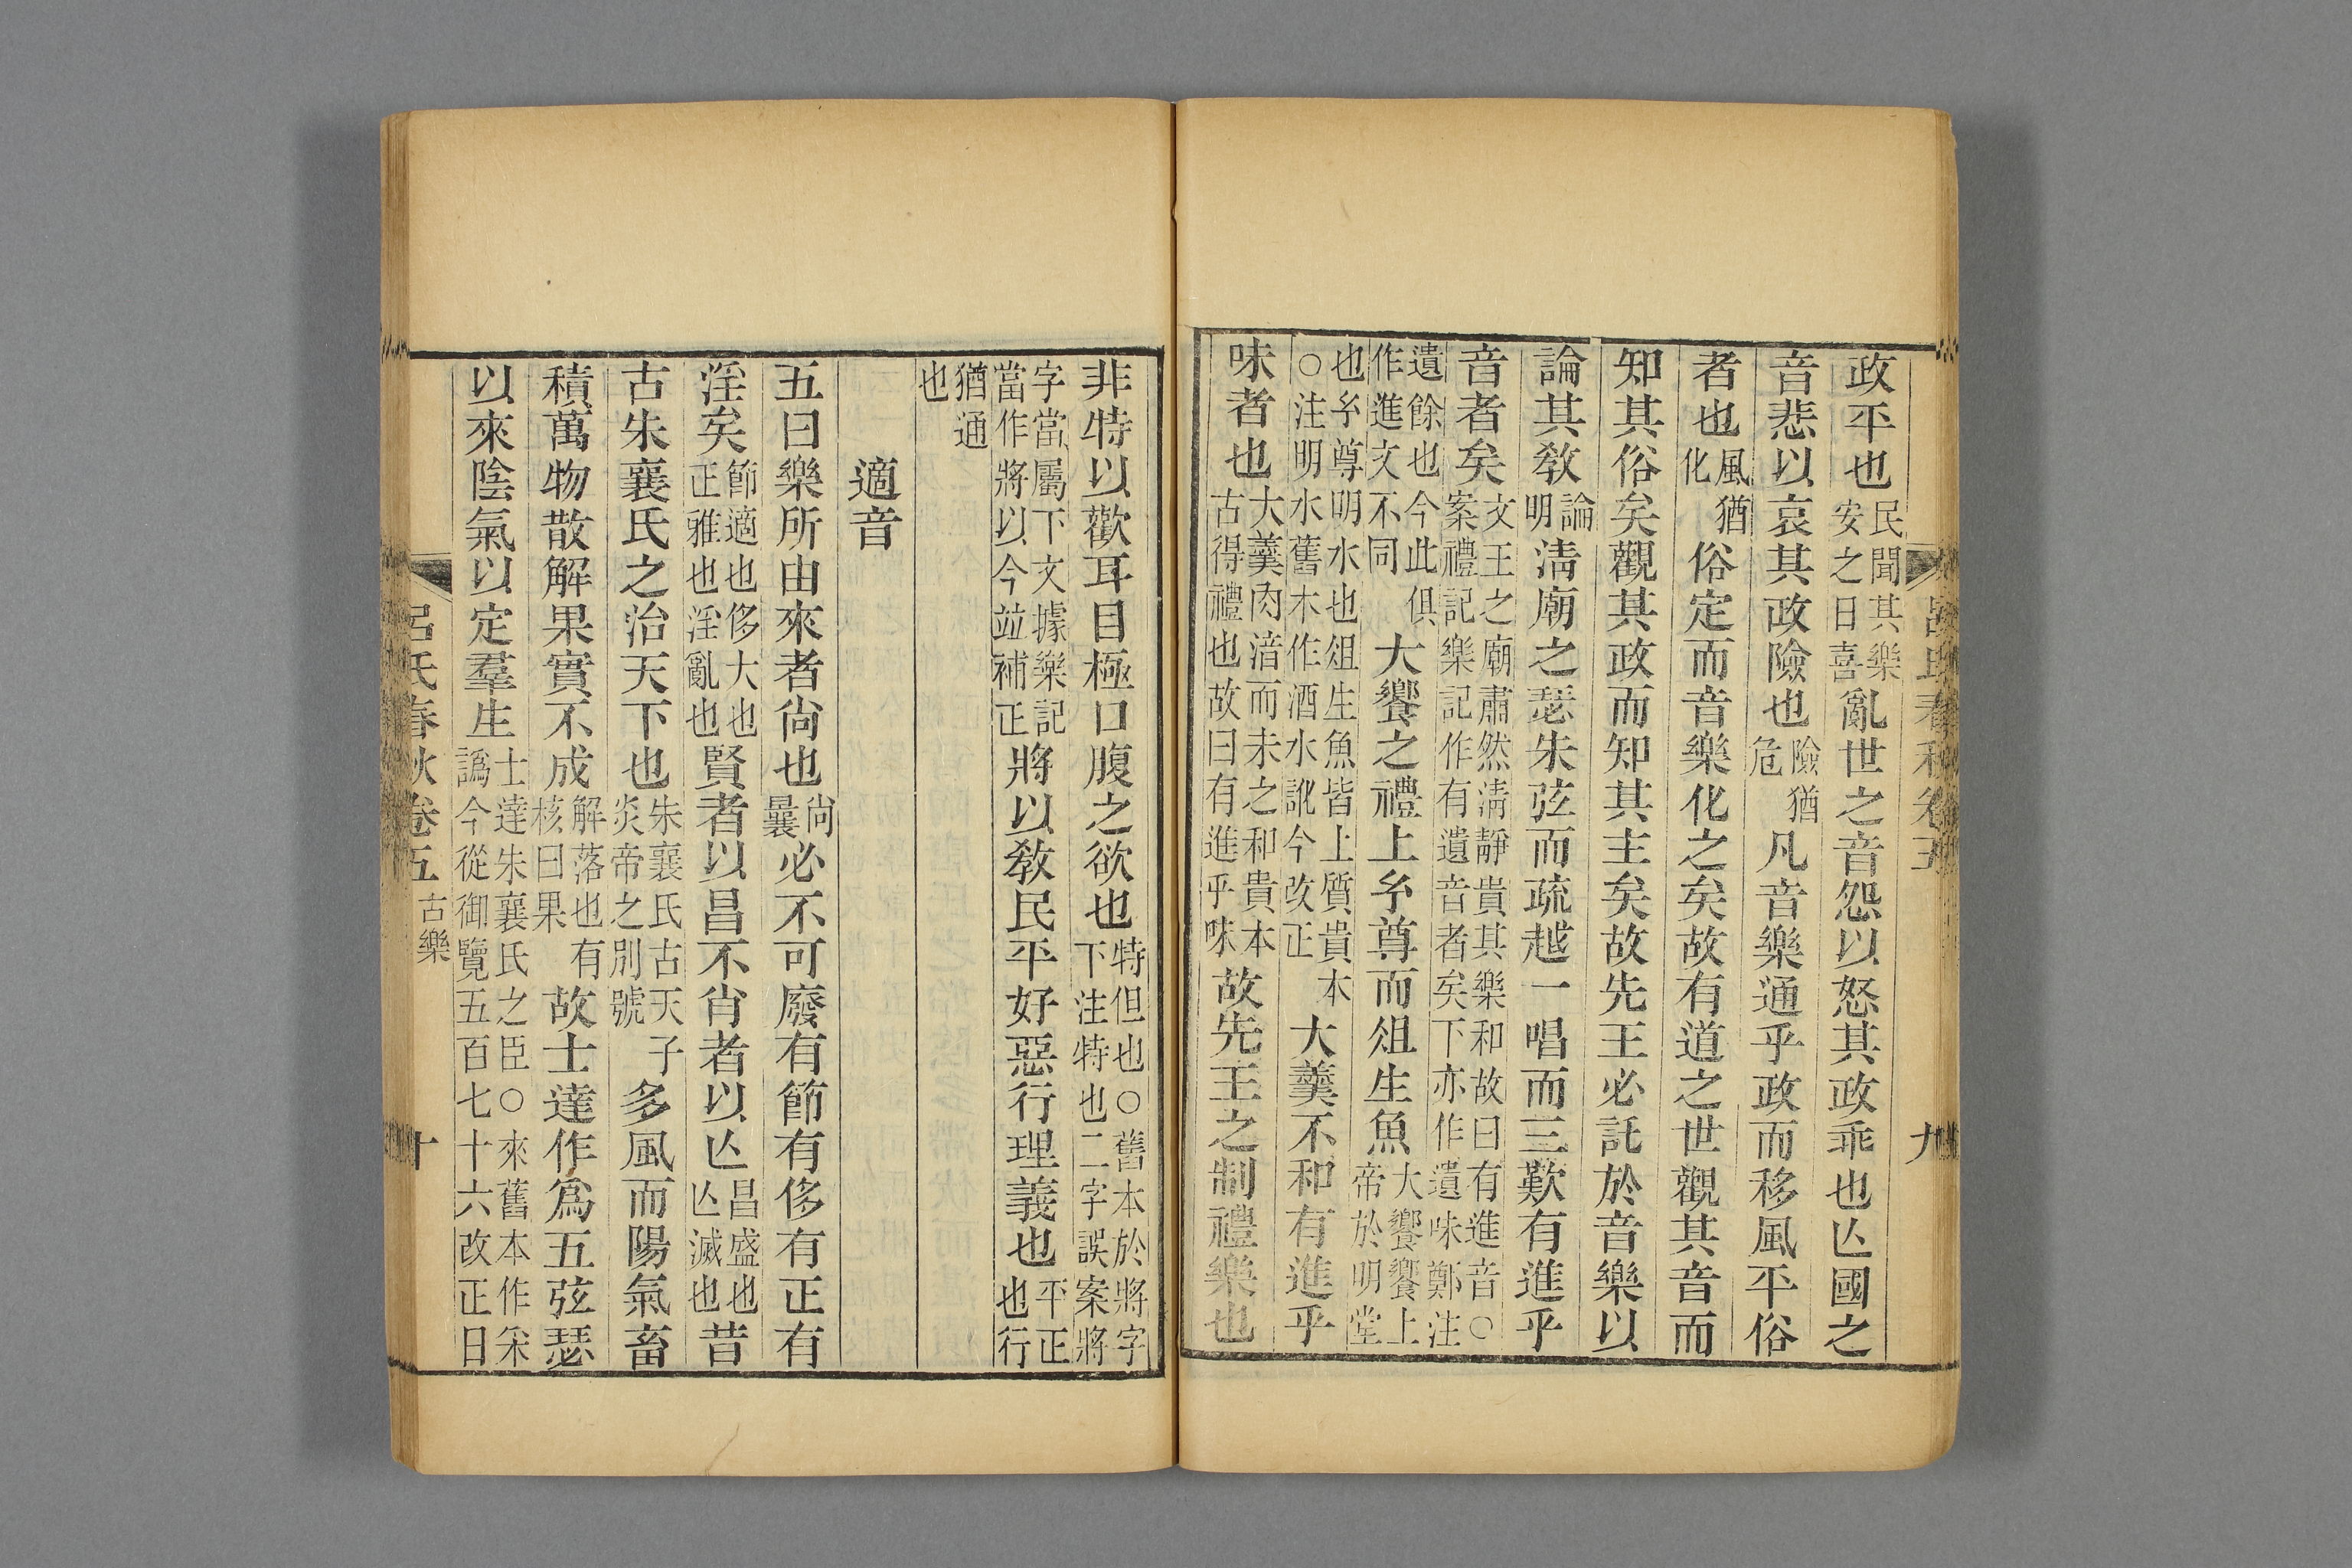 呂氏春秋卷五 九
政平也民聞其樂安之曰喜亂世之音怨以怒其政乖也亾國之
音悲以哀其政險也險猶危凡音樂通乎政而移風平俗
者也風猶化俗定而音樂化之矣故有道之世觀其音而
知其俗矣觀其政而知其主矣故先王必託於音樂以
論其敎論明淸廟之瑟朱弦而疏越一唱而三歎有進乎
音者矣文王之廟肅然淸靜貴其樂和故曰有進音○案禮記樂記作有遺音者矣下亦作遺味鄭注
遺餘也今此俱作進文不同大饗之禮上𤣥尊而俎生魚大饗饗上帝於明堂
也𤣥尊明水也俎生魚皆上質貴本○注明水舊木作酒水訛今改正大羹不和有進乎
味者也大羹肉湆而未之和貴本古得禮也故曰有進乎味故先王之制禮樂也
非特以歡耳目極口腹之欲也特但也○舊本於將字下注特也二字誤案將
字當屬下文據樂記當作將以今竝補正將以敎民平好惡行理義也平正也行
猶通也
適音
五曰樂所由來者尙也尙曩必不可廢有節有侈有正有
淫矣節適也侈大也正雅也淫亂也賢者以昌不肖者以亾昌盛也亾滅也昔
古朱襄氏之治天下也朱襄氏古天子炎帝之別號多風而陽氣畜
積萬物散解果實不成解落也有核曰果故士達作爲五弦瑟
以來陰氣以定羣生士達朱襄氏之臣○來舊本作采譌今從御覽五百七十六改正曰
呂氏春秋卷五 古樂 十